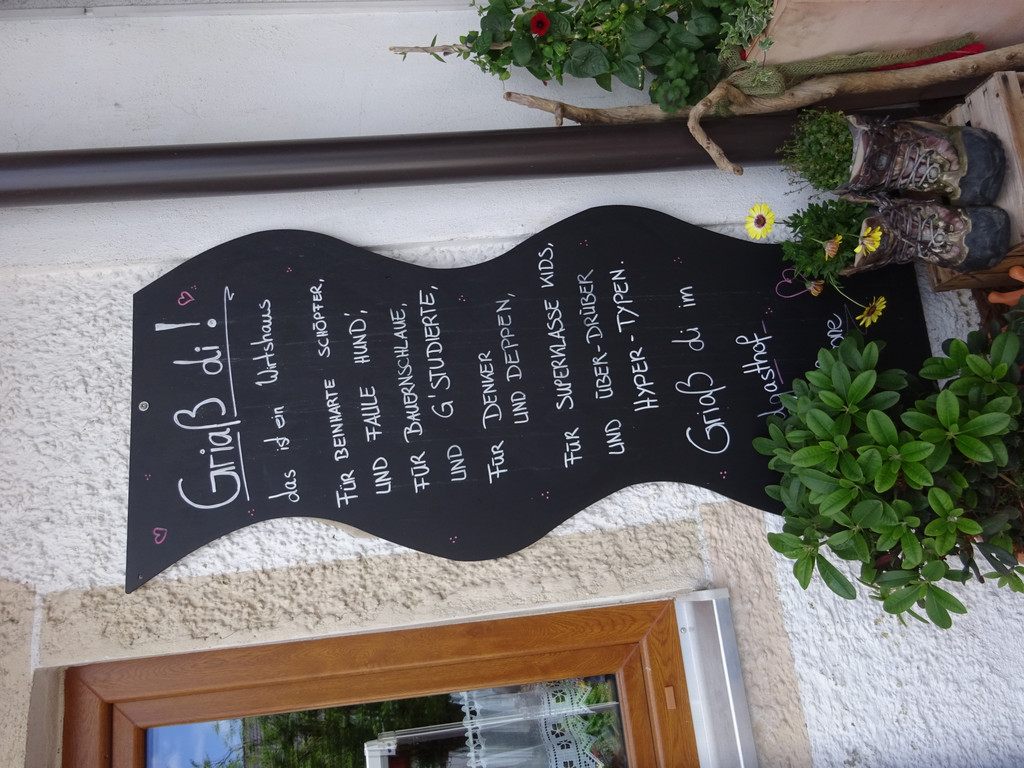 Griaß di!
das ist ein Wirtshaus
FÜR BEINHARTE SCHÖPFER,
UND FALLE HUND',
FÜR BAUERNSCHLAUE,
UND G'STUDIERTE,
FÜR DENKER
UND DEPPEN,
FÜR SUPERKLASSE KIDS,
UND ÜBER-DRÜBER
HYPER-TYPEN.
Griaß di im